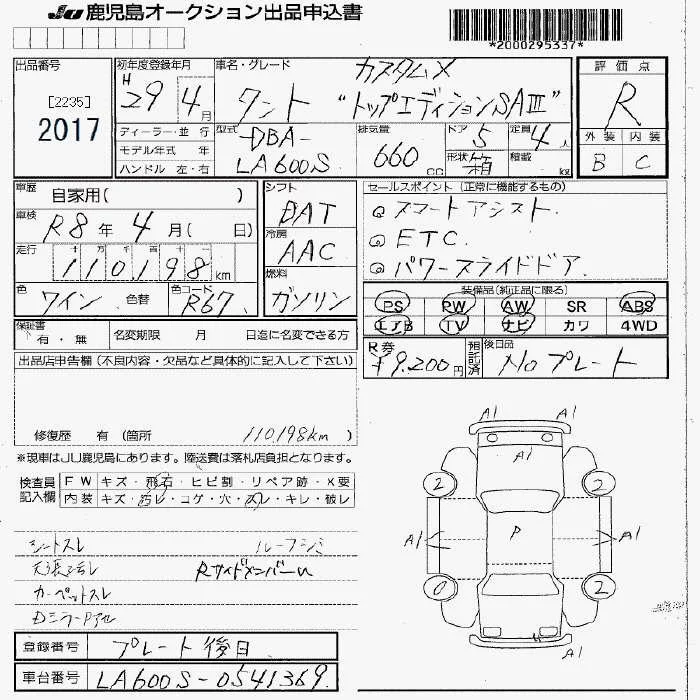 JU 鹿児島オークション出品申込書
*2000295337*
出品番号 [2235] 2017
初年度登録年月 H 29 4月
車名・グレード タント カスタムX "トップエディションSAⅢ"
評価点 R
外装 内装
B C
ディーラー・並 行
モデル年式 年
ハンドル 左・右
型式 DBA- LA600S
排気量 660 cc
ドア 5 定員 4人
形状 箱 積載 kg
車歴 自家用( )
車検 R8年 4月( 日)
走行 十 万 千 百 十 一
110,198 km
色 ワイン 色替 色コード R67
シフト DAT
冷房 AAC
燃料 ガソリン
セールスポイント(正常に機能するもの)
スマートアシスト.
ETC.
パワースライドドア.
装備品(純正品に限る)
PS PW AW SR ABS
エアB TV ナビ カワ 4WD
保証書 有・無 名変期限 月 日迄に名変できる方
R券 ¥9,200円 預託済 後日品 Noプレート
出品店申告欄(不良内容・欠品など具体的に記入して下さい)
修復歴 有(箇所 110198km )
※現車はJU鹿児島にあります。陸送費は落札店負担となります。
検査員記入欄 FW キズ・飛石・ヒビ割・リペア跡・X要
内装 キズ・汚レ・コゲ・穴・スレ・キレ・破レ
シートスレ ルーフシミ
天張汚レ RサイドメンバーU
カーペットスレ
Dミラー
登録番号 プレート後日
車台番号 LA600S-0541369
A1 A1
A1
2 2
A1 P A1
0 2
A1